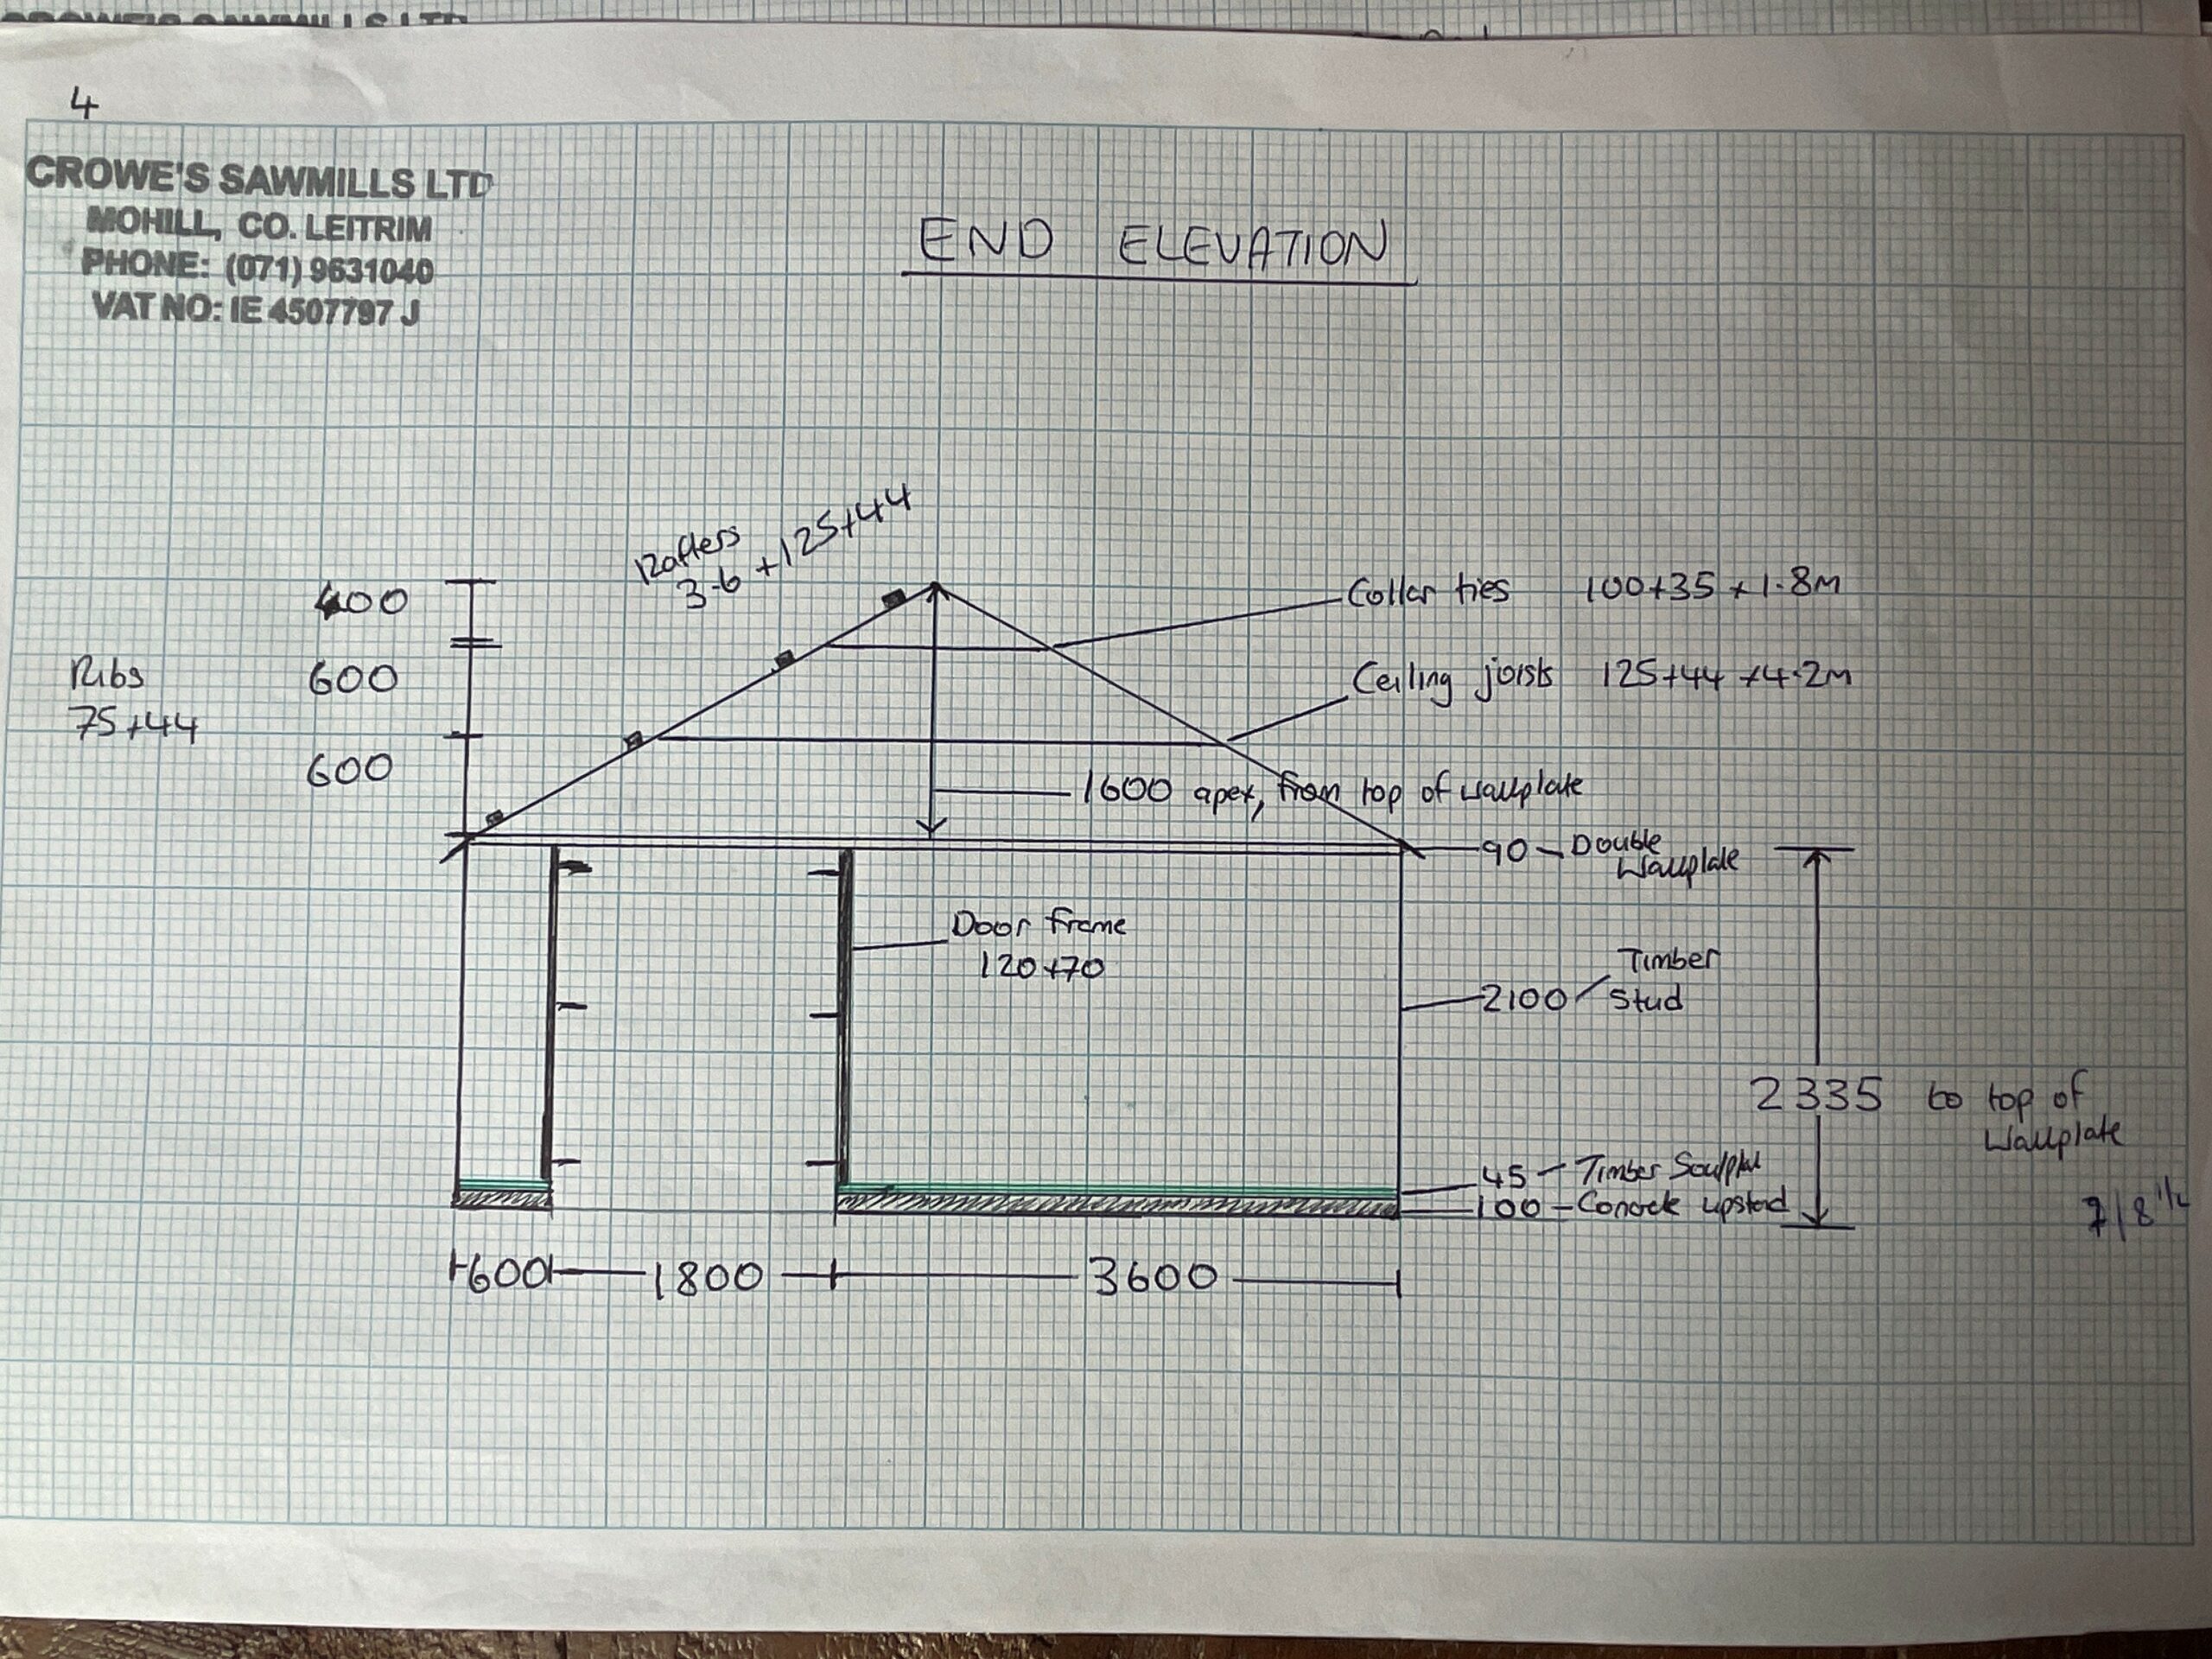 4
CROWE'S SAWMILLS LTD
MOHILL, CO. LEITRIM
PHONE: (071) 9631040
VAT NO: IE 4507797 J
END ELEVATION
Rafters
3.6 + 125+44
400
600
600
Ribs
75+44
Collar ties 100+35 + 1.8m
Ceiling joists 125+44 +4.2m
1600 apex, from top of wallplate
90 - Double
Wallplate
Door frame
120+70
2100 / Timber
Stud
2335 to top of
Wallplate
45 - Timber
100 - Concrete
7/8 1/2
600
1800
3600